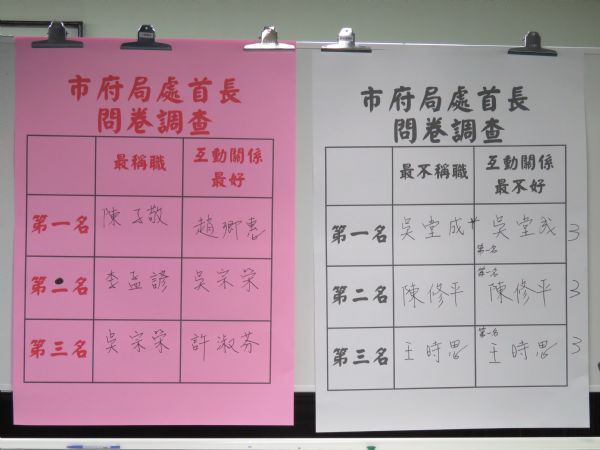 市府局處首長
問卷調查
最稱職
互動關係
最好
第一名
陳子敬
趙卿惠
第二名
李孟諺
吳宗榮
第三名
吳宗榮
許淑芬
市府局處首長
問卷調查
最不稱職
互動關係
最不好
第一名
吳堂成
吳堂成
3
第一名
第二名
陳修平
第一名
陳修平
3
第三名
王時思
第一名
王時思
3